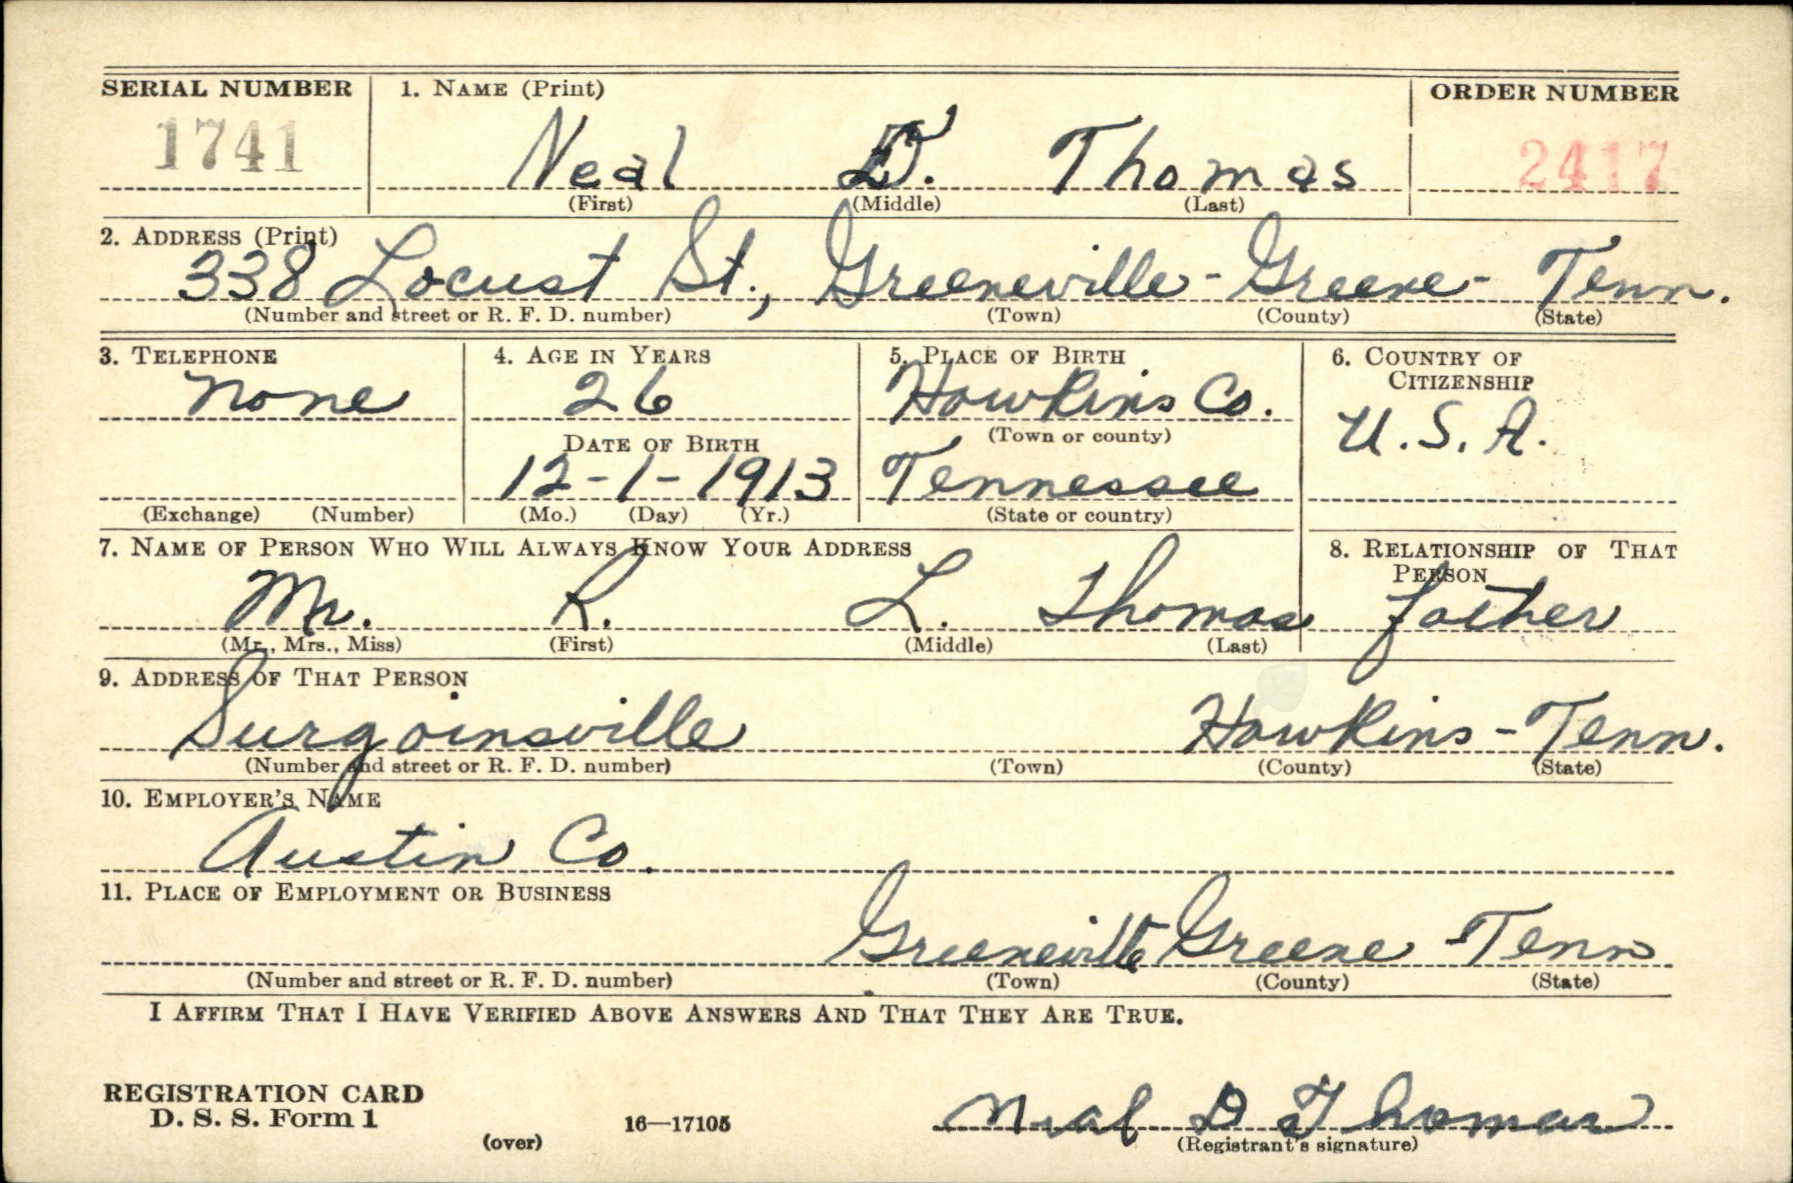 SERIAL NUMBER 1. NAME (Print) ORDER NUMBER
1741 Neal D. Thomas 2417
(First) (Middle) (Last)
2. ADDRESS (Print)
338 Locust St., Greeneville - Greene - Tenn.
(Number and street or R. F. D. number) (Town) (County) (State)
3. TELEPHONE 4. AGE IN YEARS 5. PLACE OF BIRTH 6. COUNTRY OF
CITIZENSHIP
None 26 Hawkins Co. U.S.A.
DATE OF BIRTH (Town or county)
12-1-1913 Tennessee
(Exchange) (Number) (Mo.) (Day) (Yr.) (State or country)
7. NAME OF PERSON WHO WILL ALWAYS KNOW YOUR ADDRESS 8. RELATIONSHIP OF THAT
PERSON
Mr. R. L. Thomas father
(Mr., Mrs., Miss) (First) (Middle) (Last)
9. ADDRESS OF THAT PERSON
Surgoinsville Hawkins - Tenn.
(Number and street or R. F. D. number) (Town) (County) (State)
10. EMPLOYER'S NAME
Austin Co.
11. PLACE OF EMPLOYMENT OR BUSINESS
Greeneville Greene - Tenn
(Number and street or R. F. D. number) (Town) (County) (State)
I AFFIRM THAT I HAVE VERIFIED ABOVE ANSWERS AND THAT THEY ARE TRUE.
REGISTRATION CARD
D. S. S. Form 1 16—17105 Neal D Thomas
(over) (Registrant's signature)